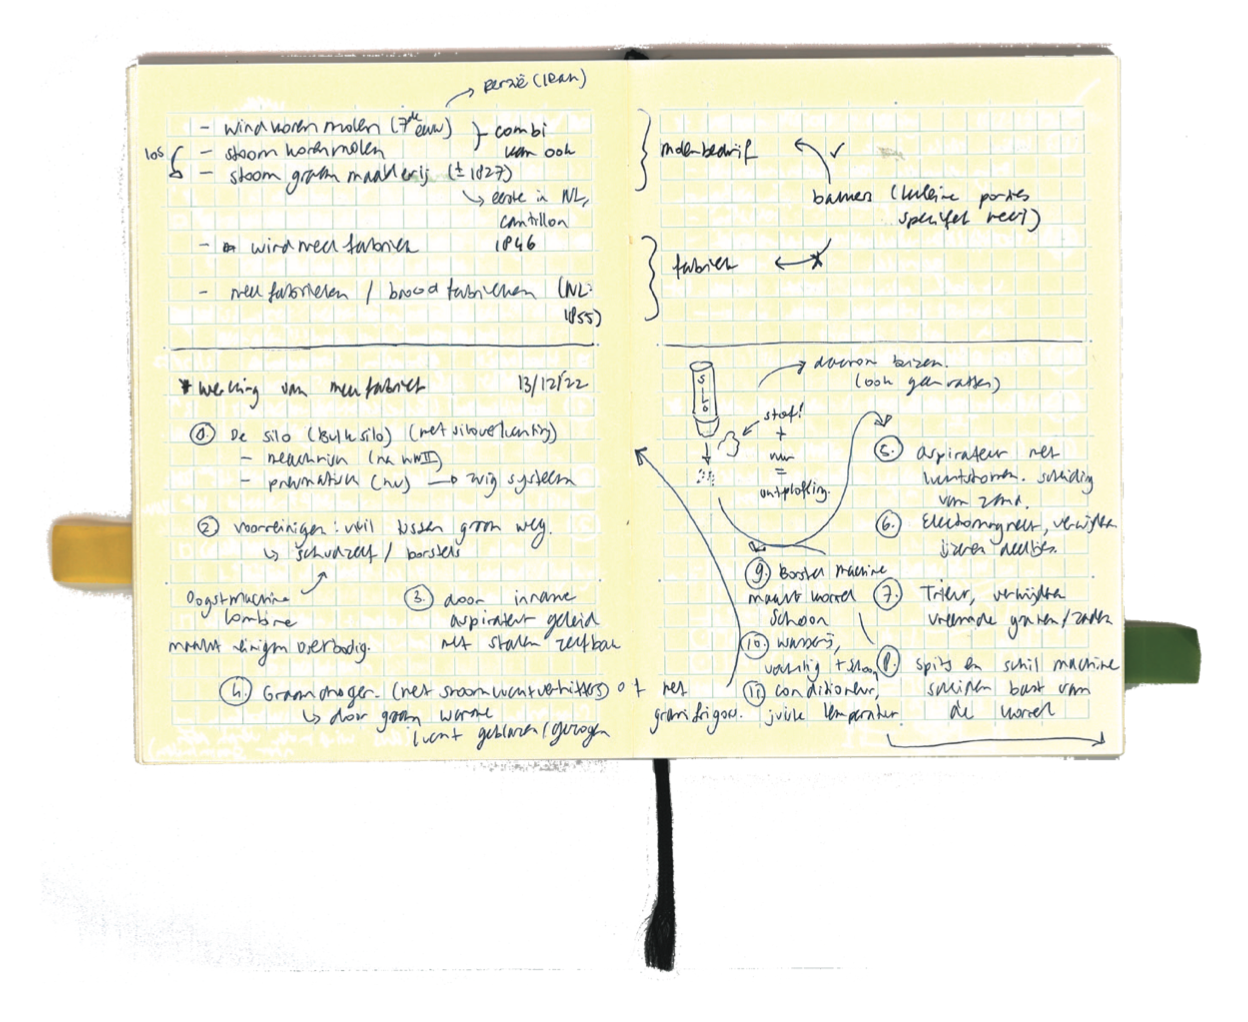 → Perzië (IRAN)
- windkorenmolen (7de eeuw) } combi
los - stoom korenmolen kan ook
- stoom graan maalderij (± 1827)
↳ eerste in NL,
cantillon
- windmeel fabriek 1846
- meelfabrieken / broodfabrieken (NL:
1855)
* Werking van meelfabriek 13/12/22
1. De silo (bulksilo) (met siloverluchting)
- mechanisch (na WWII)
- pneumatisch (nu) → zuig systeem
2 voorreinigen: vuil tussen graan weg.
↳ schudzeef / borstels
Oogstmachine
combine
maakt reinigen overbodig.
3. door inname
aspirateur geleid
met stalen zeefbak
4. Graandroger. (met stoomluchtverhitters) of met
↳ door graan warme granifrigor.
lucht geblazen / gezogen
molenbedrijf
bakkers (kleine porties
specifiek meel)
fabriek
SILO
→ daarom beizen.
(ook geen ratten)
stof!
+
vuur
=
ontploffing.
5. aspirateur met
luchtstromen. scheiding
van zand.
6. Electromagneet, verwijderen
ijzeren deeltjes.
7. Trieur, verwijderen
vreemde granen/zaden
8. Spits en schil machine
scheiden bast van
de korrel
9. Borstel machine
maakt korrel
schoon
10. wasserij,
vochtig + stoom
11 conditioneur,
juiste temperatuur.